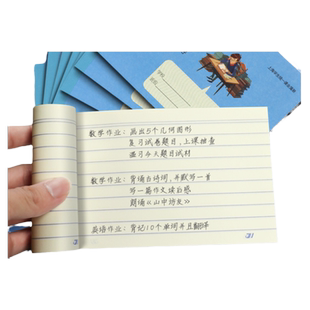 数学作业：画出5个几何图形
复习试卷题目，上课抽查
温习今天题目试材
数学作业：背诵古诗词，并默写一首
写一篇作文读后感
朗诵《山中访友》
英语作业：背记10个单词并且翻译
31